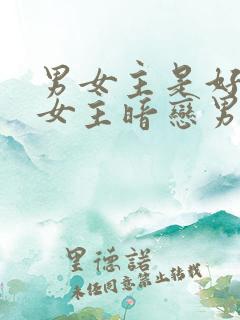 男女主是好
女主暗戀男
里德諾
未经同意禁止转载